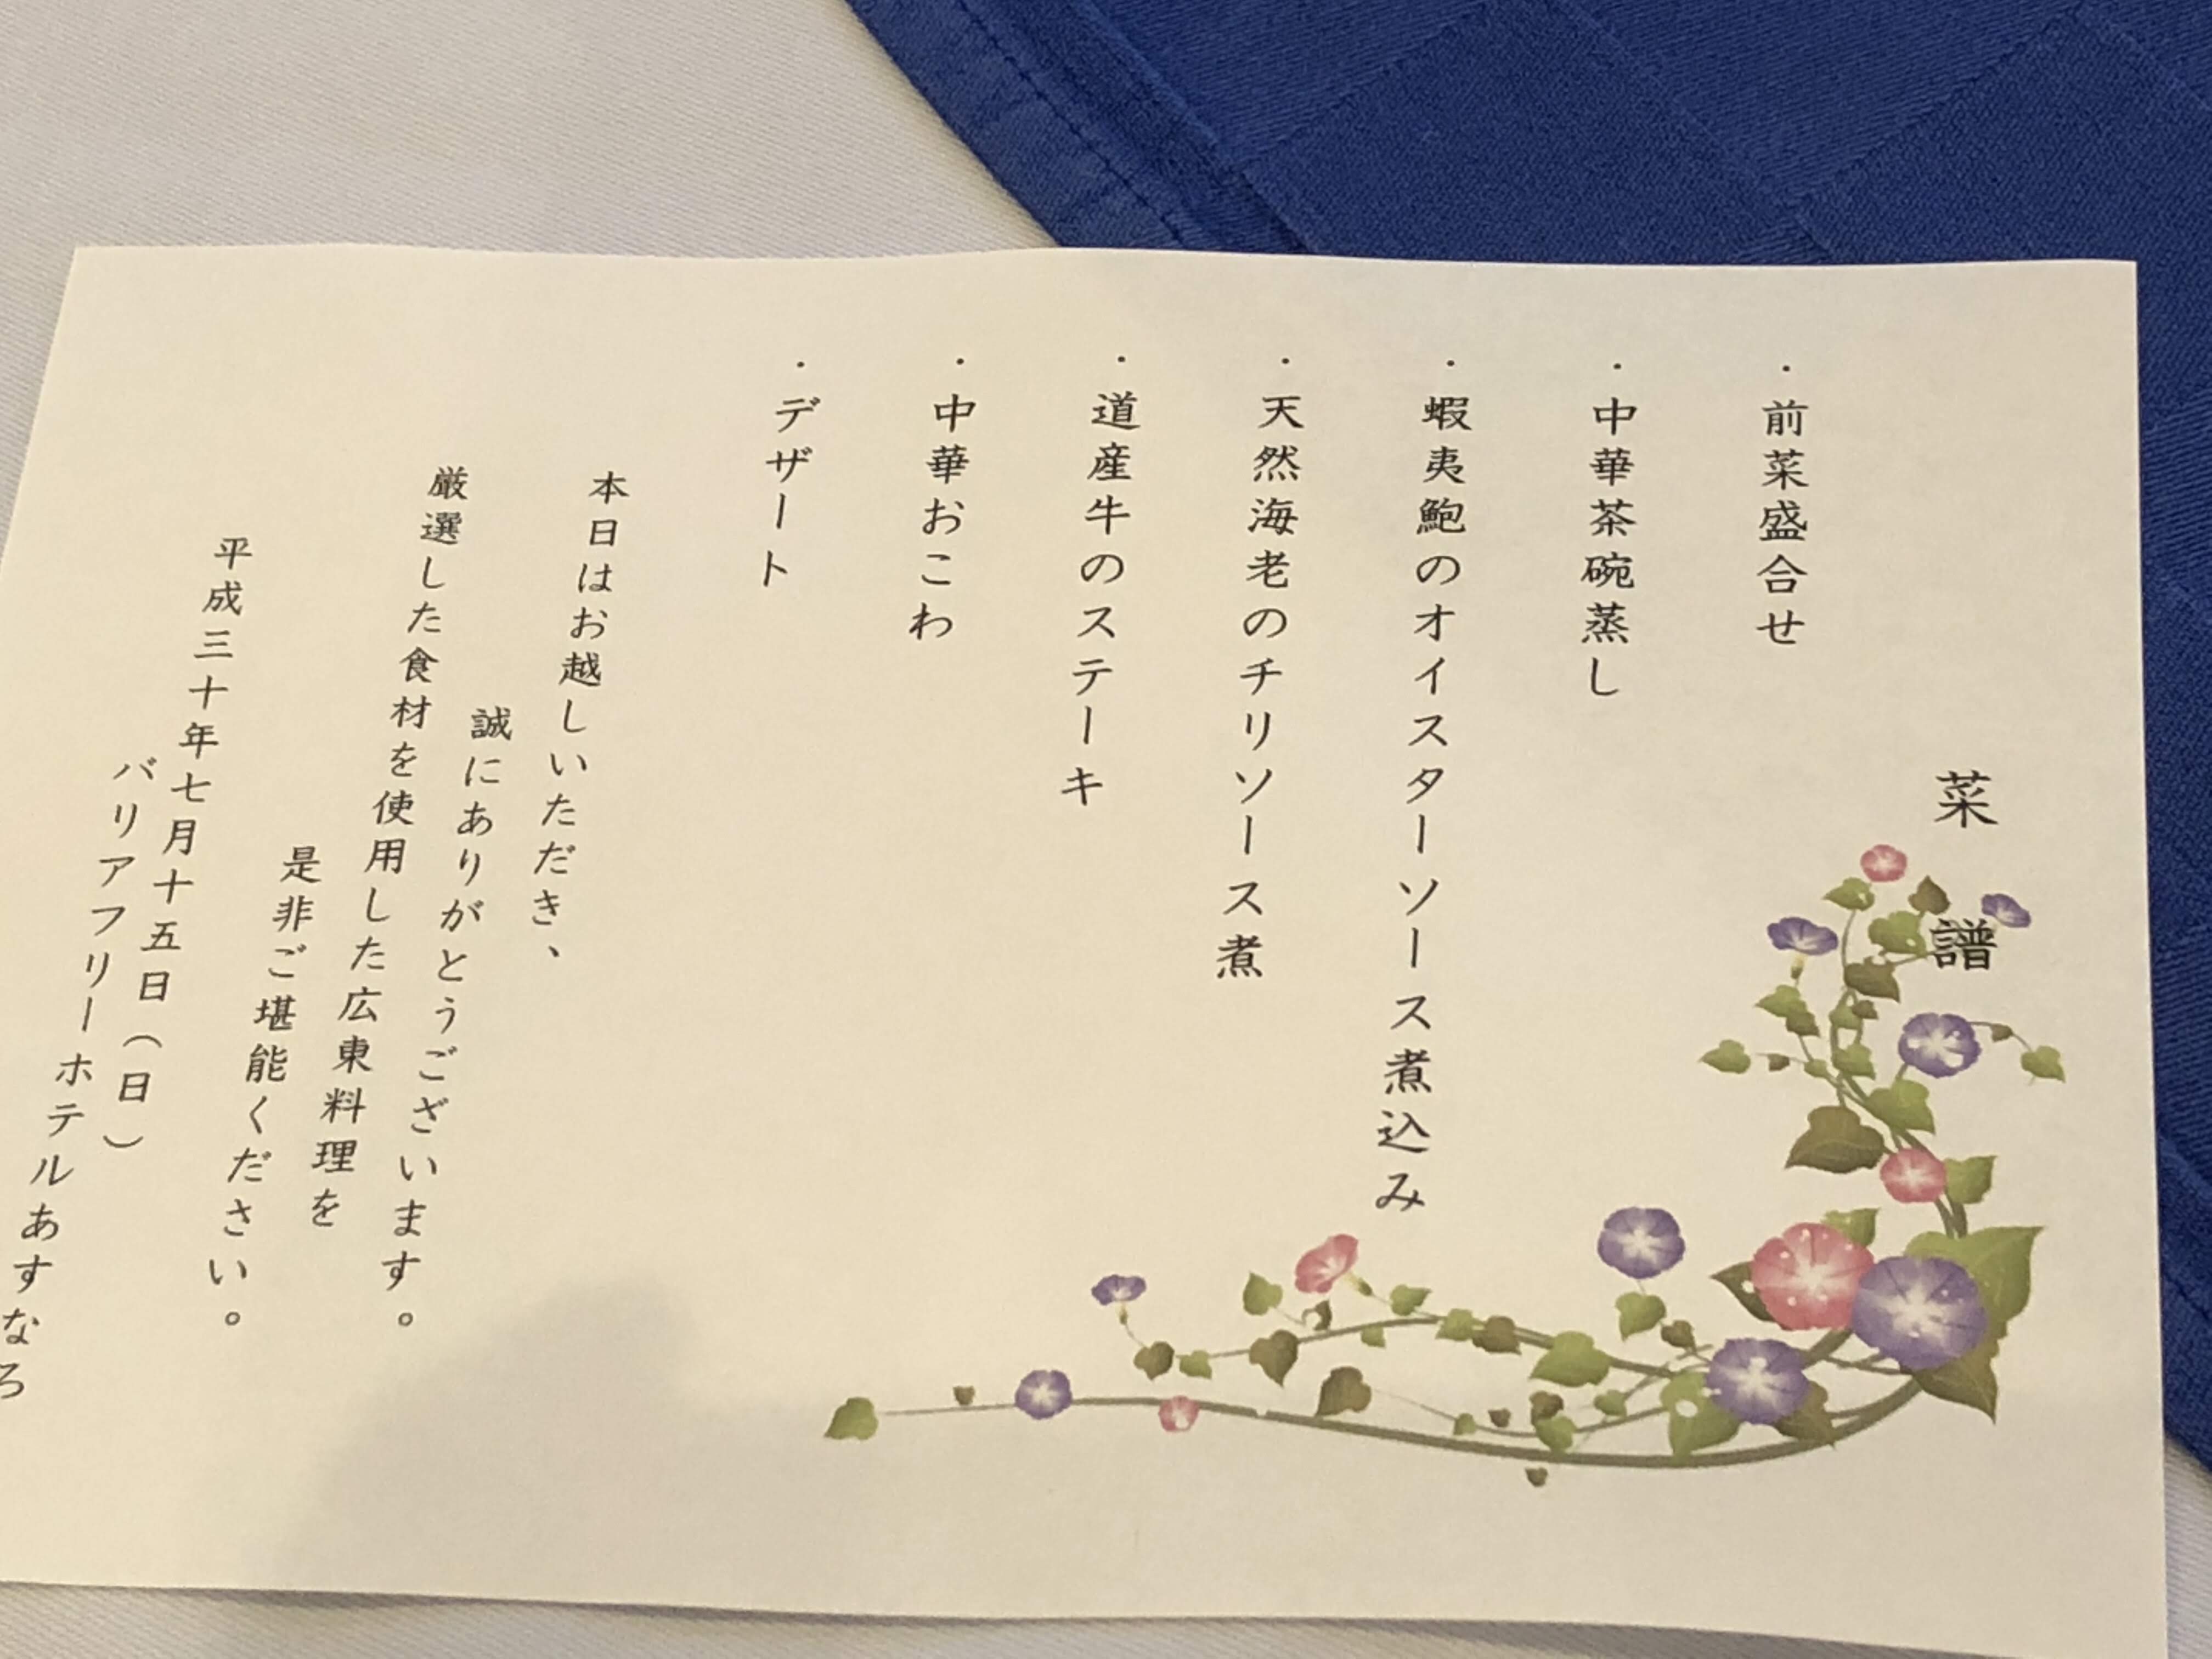 菜譜
・前菜盛合せ
・中華茶碗蒸し
・蝦夷鮑のオイスターソース煮込み
・天然海老のチリソース煮
・道産牛のステーキ
・中華おこわ
・デザート
本日はお越しいただき、
誠にありがとうございます。
厳選した食材を使用した広東料理を
是非ご堪能ください。
平成三十年七月十五日(日)
バリアフリーホテルあすなろ